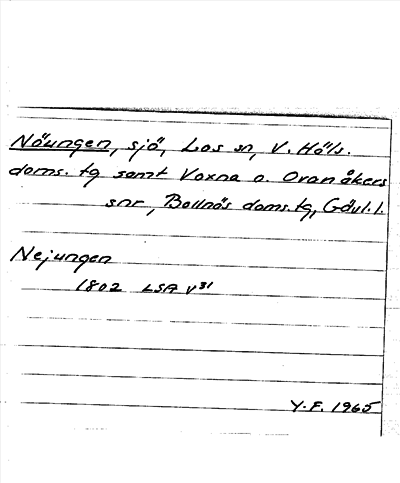 Nöungen, sjö, Los sn, V. Häls.
doms. tg samt Voxna o. Ovanåkers
snr, Bollnäs doms.tg, Gävl. l.
Nejungen
1802 LSA V31
Y.F. 1965